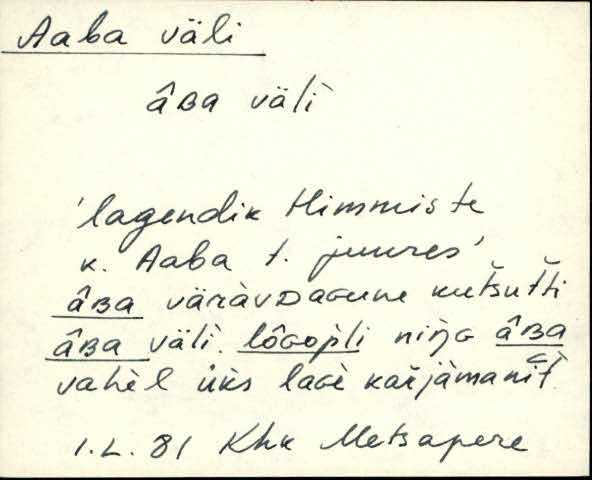 Aaba väli
âʙa väĺi
'lagendik Himmiste
k. Aaba t. juures'
âʙa väràvᴅaɢune kutšutti
âʙa väĺi. lôɢoƥli niŋɢ âʙa
vahèl üks laɢè kaŕjàmaniť
1.L. 81 Khk Metsapere